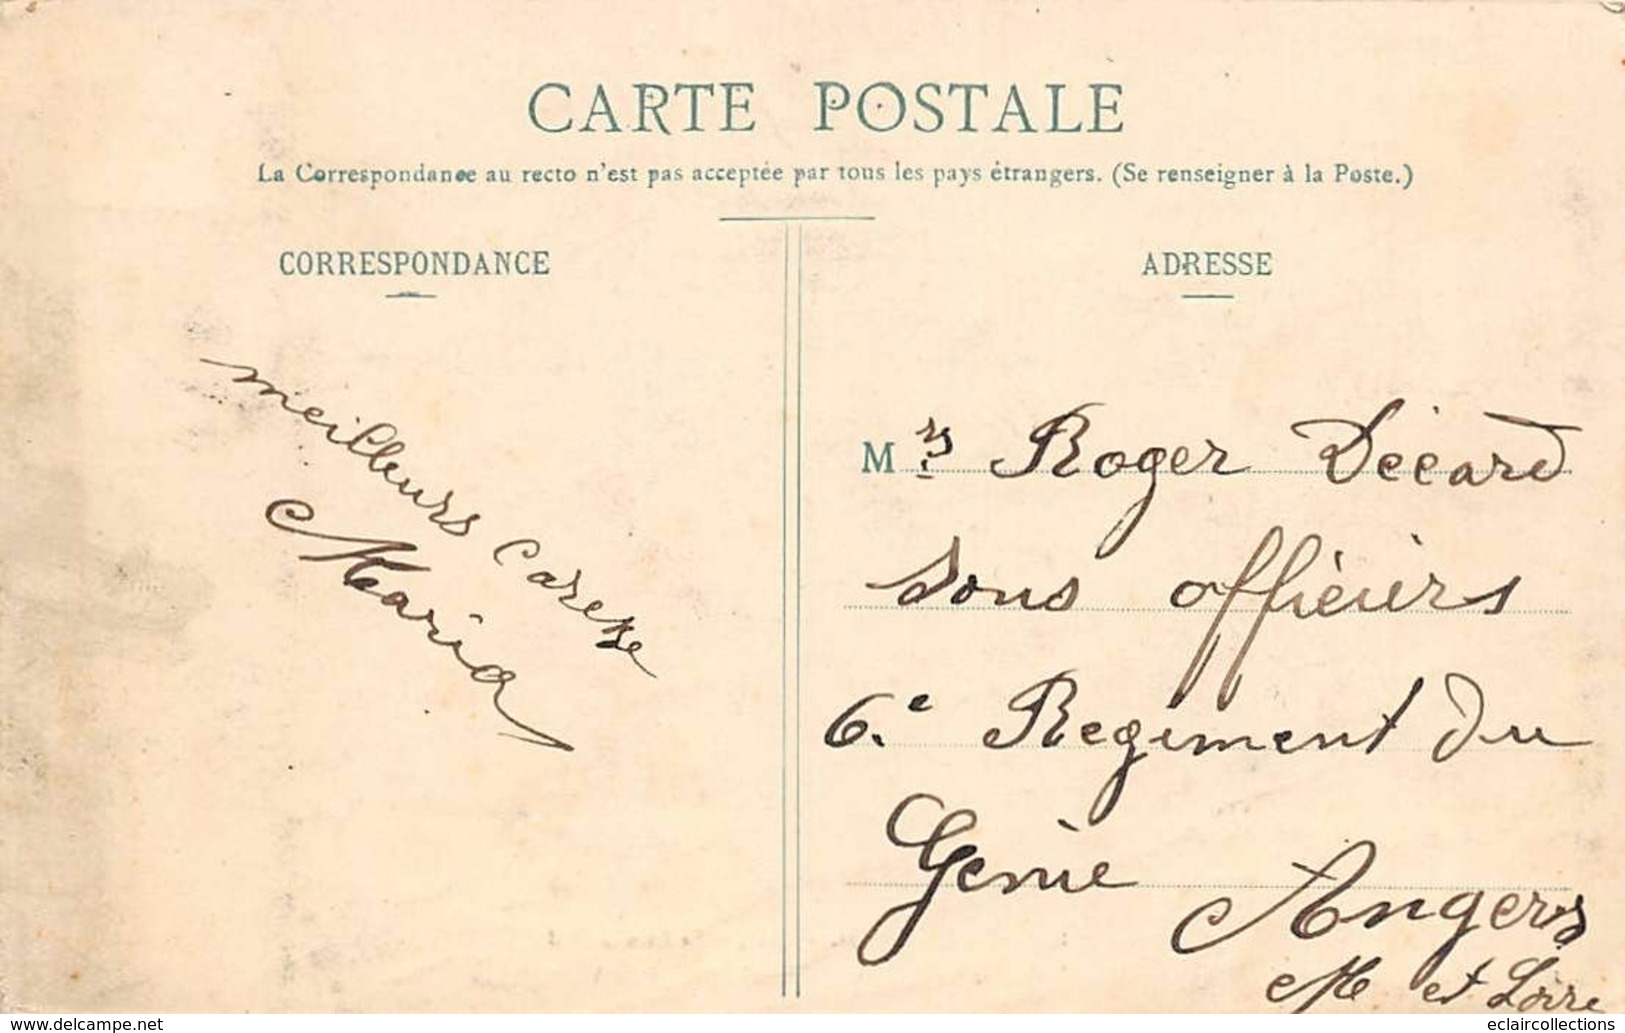 CARTE POSTALE
La Correspondance au recto n'est pas acceptée par tous les pays étrangers. (Se renseigner à la Poste.)
CORRESPONDANCE
meilleurs Caresse
Maria
ADRESSE
Mrs Roger Décard
sous officiers
6.e Regiment du
Genie Angers
M et Loire
www.delcampe.net
eclaircollections